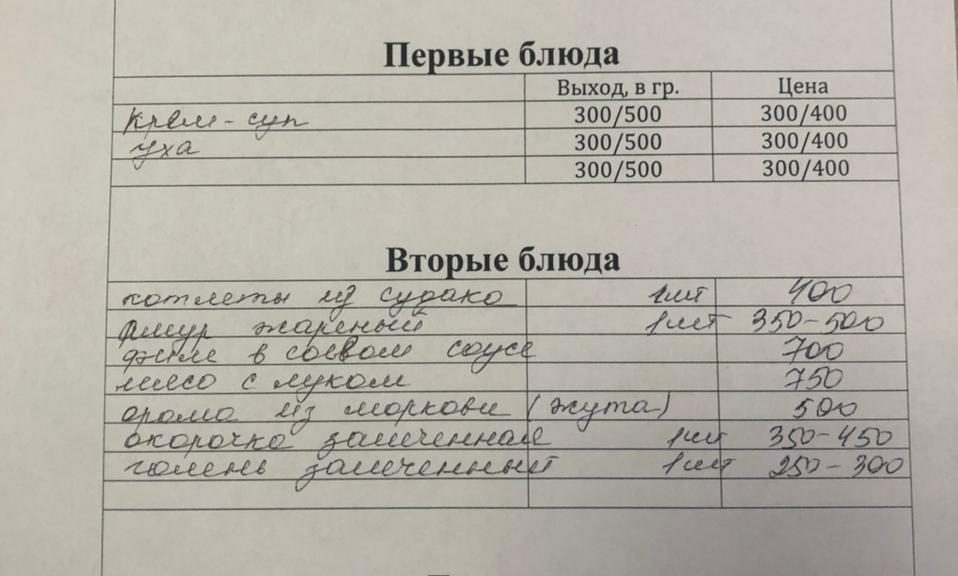 Первые блюда
Выход, в гр. Цена
Крем-суп 300/500 300/400
уха 300/500 300/400
300/500 300/400
Вторые блюда
котлеты из судако 1шт 400
амур жареный 1шт 350-500
филе в соевом соусе 700
мясо с луком 750
орама из моркови (жута) 500
окорочка запеченная 1шт 350-450
голень запеченный 1шт 250-300